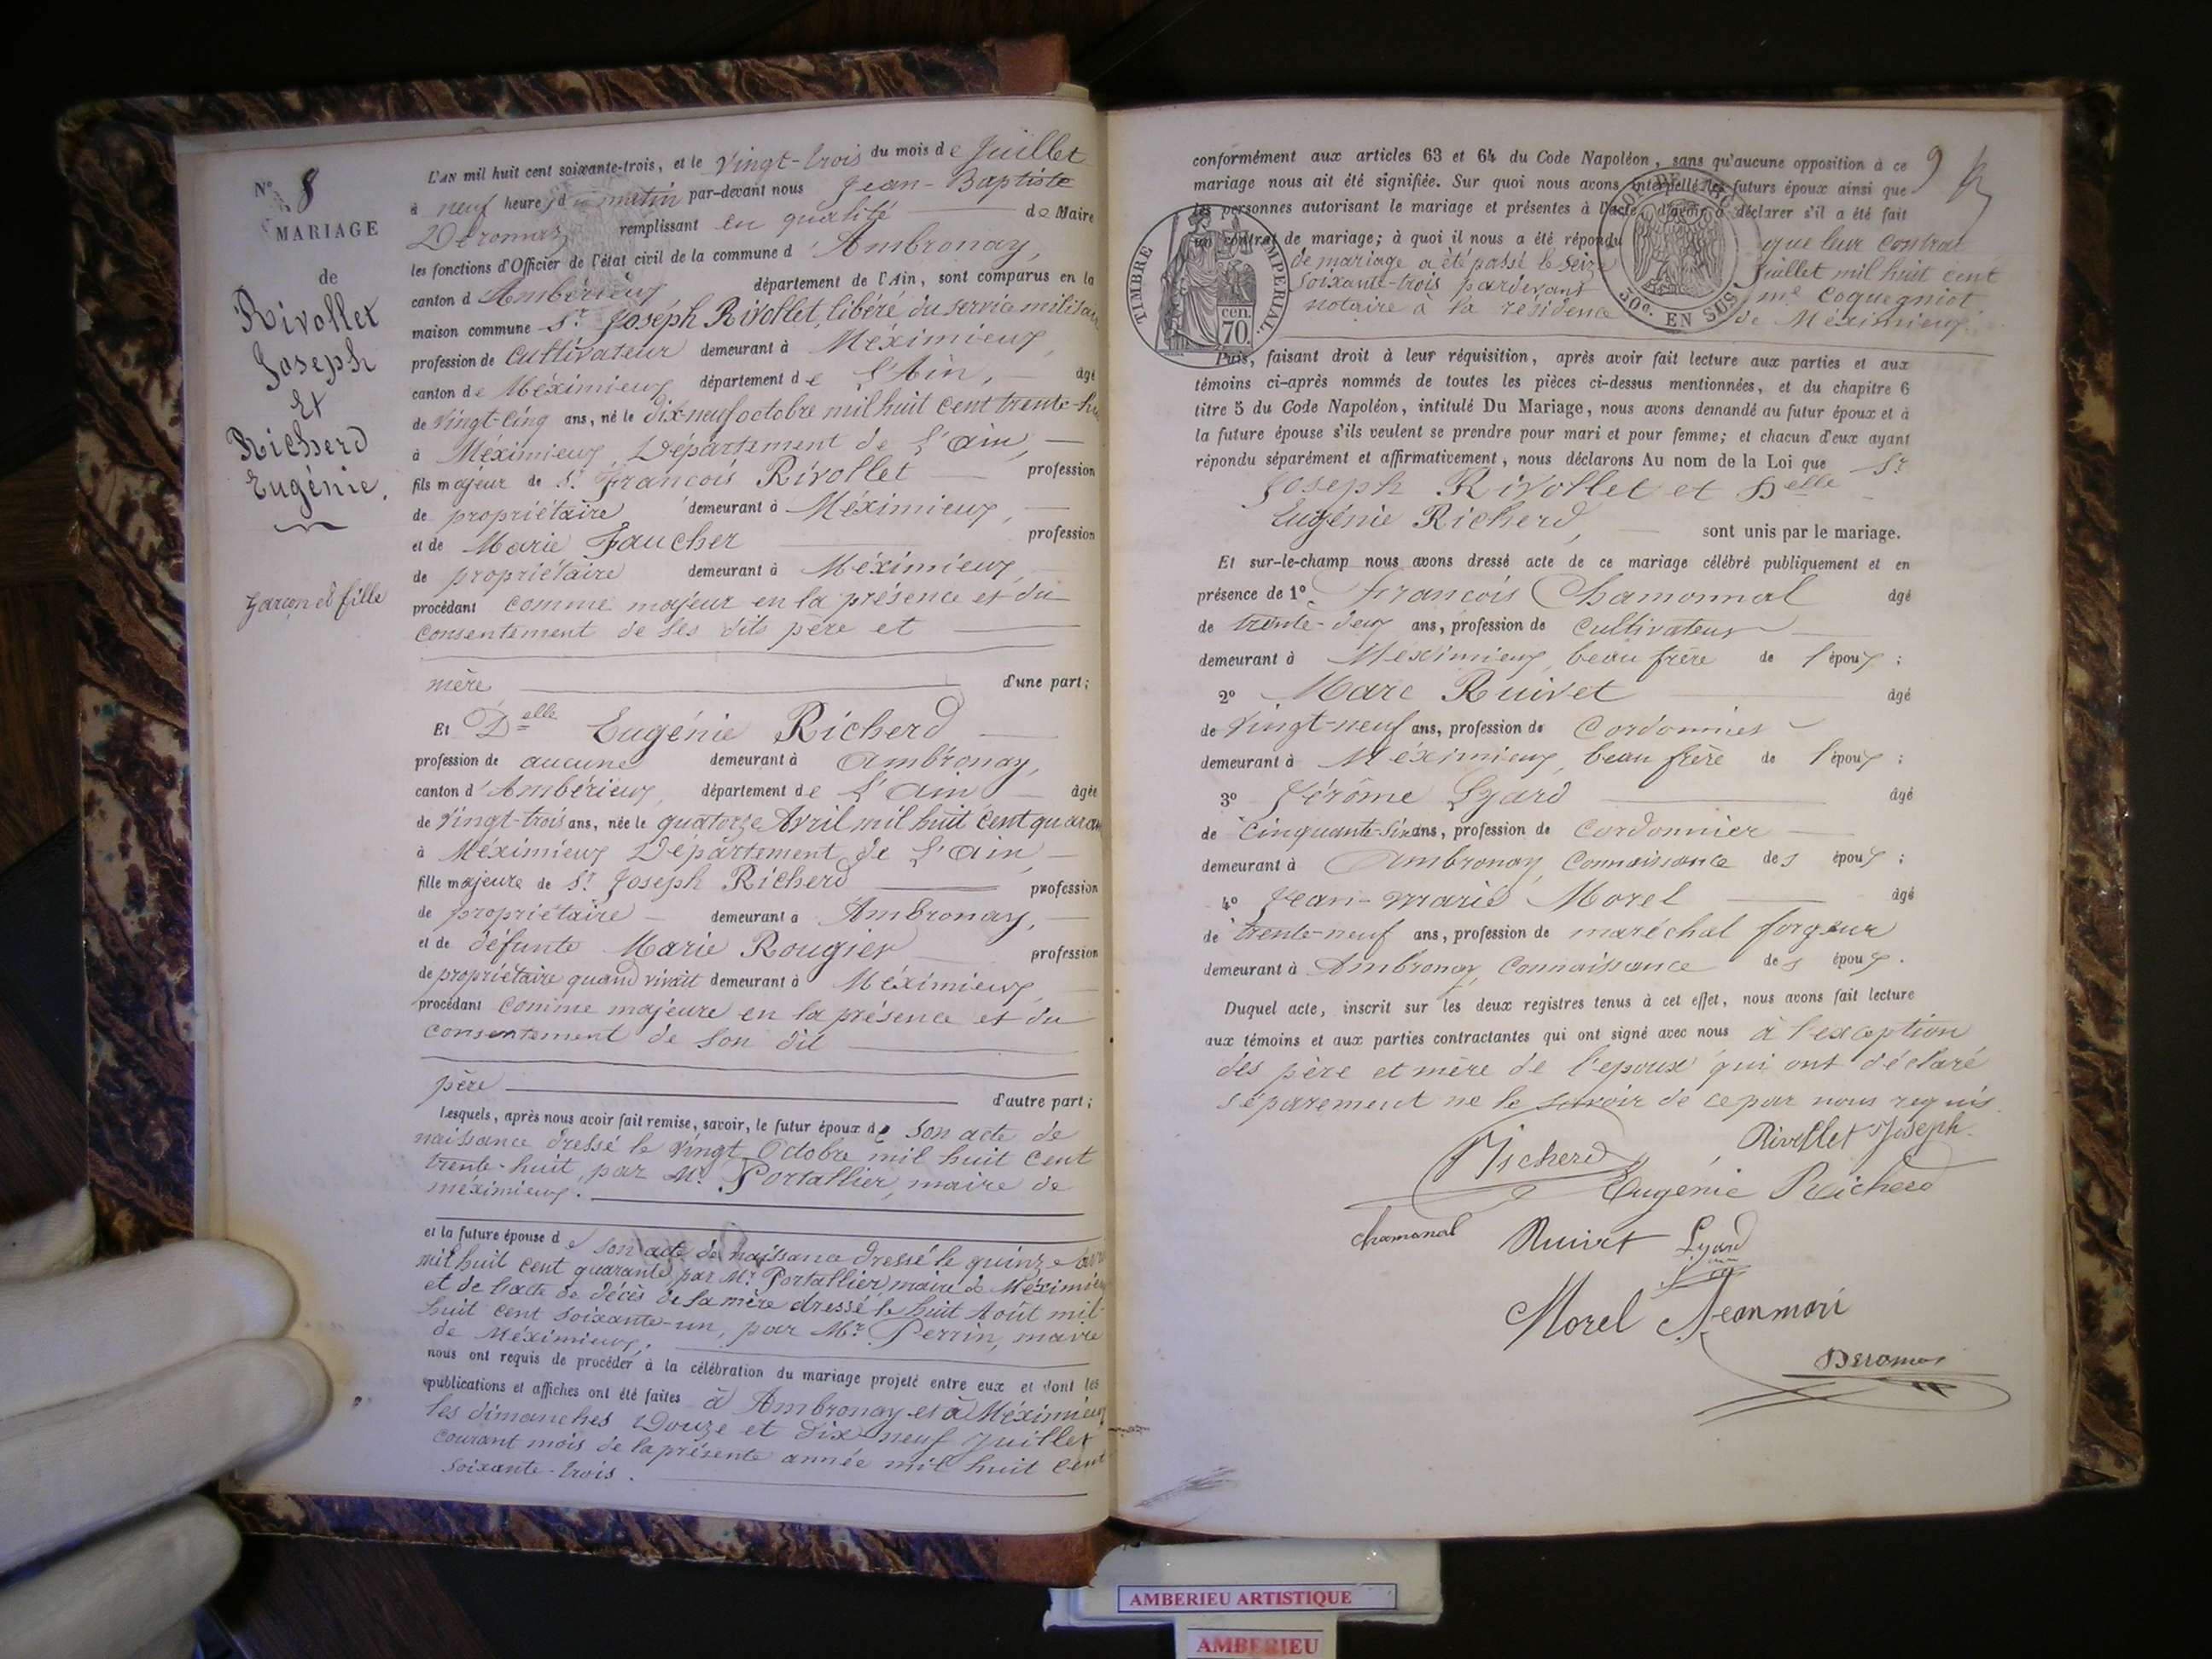 N° 8
MARIAGE
de
Rivollet
Joseph
Et
Richerd
Eugénie.
garçon et fille
L'AN mil huit cent soixante-trois, et le vingt-trois du mois de Juillet
à neuf heures du matin par-devant nous Jean-Baptiste
remplissant en qualité de Maire
les fonctions d'Officier de l'état civil de la commune d'Ambronay,
canton d'Ambérieux département de l'Ain, sont comparus en la
maison commune Sr Joseph Rivollet, libéré du service militaire
profession de Cultivateur demeurant à Méximieux,
canton de Méximieux département de l'Ain, âgé
de vingt-cinq ans, né le dix-neuf octobre mil huit cent trente-hu
à Méximieux Département de l'Ain,
fils majeur de Sr François Rivollet profession
de propriétaire demeurant à Méximieux,
et de Marie Faucher profession
de propriétaire demeurant à Méximieux,
procédant comme majeur en la présence et du
consentement de ses dits père et
mère d'une part;
Et Delle Eugénie Richerd
profession de aucune demeurant à Ambronay,
canton d'Ambérieux, département de l'Ain âgée
de vingt-trois ans, née le quatorze Avril mil huit cent quaran
à Méximieux Département de l'Ain,
fille majeure de Sr Joseph Richerd profession
de propriétaire demeurant à Ambronay,
et de défunte Marie Rougier profession
de propriétaire quand vivait demeurant à Méximieux,
procédant comme majeure en la présence et du
consentement de son dit
père d'autre part;
Lesquels, après nous avoir fait remise, savoir, le futur époux de son acte de
naissance dressé le vingt Octobre mil huit cent
trente-huit, par Mr Portallier, maire de
méximieux.
et la future épouse de son acte de naissance dressé le quinze avr
mil huit cent quarante, par Mr Portallier, maire de Méximieu
et de l'acte de décès de sa mère dressé le huit Août mil-
huit cent soixante-un, par Mr Perrin, maire
de Méximieux,
nous ont requis de procéder à la célébration du mariage projeté entre eux et dont les
publications et affiches ont été faites à Ambronay et à Méximieux
les dimanches Douze et dix-neuf Juillet
courant mois de la présente année mil huit cent
soixante-trois.
9
conformément aux articles 63 et 64 du Code Napoléon, sans qu'aucune opposition à ce
mariage nous ait été signifiée. Sur quoi nous avons interpellé les futurs époux ainsi que
les personnes autorisant le mariage et présentes à l'acte, d'avoir à déclarer s'il a été fait
un contrat de mariage; à quoi il nous a été répondu que leur contrat
de mariage a été passé le seize Juillet mil huit cent
soixante-trois pardevant me Coquegniot
notaire à la résidence de Méximieux.
TIMBRE IMPERIAL.
cen. 70.
50c. EN SUS
Puis, faisant droit à leur réquisition, après avoir fait lecture aux parties et aux
témoins ci-après nommés de toutes les pièces ci-dessus mentionnées, et du chapitre 6
titre 5 du Code Napoléon, intitulé Du Mariage, nous avons demandé au futur époux et à
la future épouse s'ils veulent se prendre pour mari et pour femme; et chacun d'eux ayant
répondu séparément et affirmativement, nous déclarons Au nom de la Loi que Sr
Joseph Rivollet et Delle
Eugénie Richerd, sont unis par le mariage.
Et sur-le-champ nous avons dressé acte de ce mariage célébré publiquement et en
présence de 1° François Chamonnal âgé
de trente-deux ans, profession de Cultivateur
demeurant à Meximieux, beau frère de l'époux;
2° Marc Ruivet âgé
de vingt-neuf ans, profession de Cordonnier
demeurant à Méximieux, beau frère de l'époux;
3° Jérôme Lyard âgé
de cinquante-six ans, profession de Cordonnier
demeurant à Ambronay, Connaissance des époux;
4° Jean-marie Morel âgé
de trente-neuf ans, profession de maréchal forgeur
demeurant à Ambronay, Connaissance des époux.
Duquel acte, inscrit sur les deux registres tenus à cet effet, nous avons fait lecture
aux témoins et aux parties contractantes qui ont signé avec nous à l'exception
des père et mère de l'epoux qui ont déclaré
séparement ne le savoir de ce par nous requis.
Richerd Rivollet Joseph
Eugénie Richerd
chamonal Ruivet Lyard
Morel Jeanmari
AMBERIEU ARTISTIQUE
AMBERIEU